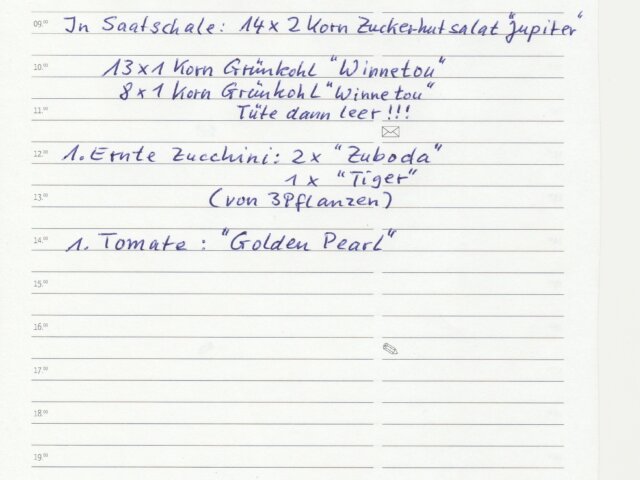 09.00 In Saatschale: 14 x 2 Korn Zuckerhutsalat "Jupiter"
10.00 13 x 1 Korn Grünkohl "Winnetou"
8 x 1 Korn Grünkohl "Winnetou"
11.00 Tüte dann leer !!!
12.00 1. Ernte Zucchini: 2 x "Zuboda"
1 x "Tiger"
13.00 (von 3 Pflanzen)
14.00 1. Tomate : "Golden Pearl"
15.00
16.00
17.00
18.00
19.00